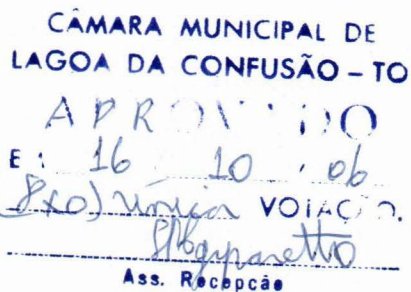 CÂMARA MUNICIPAL DE
LAGOA DA CONFUSÃO – TO
APROVADO
E : 16 10 , 06
8x0) única VOTAÇÃO.
Ass. Recepcão